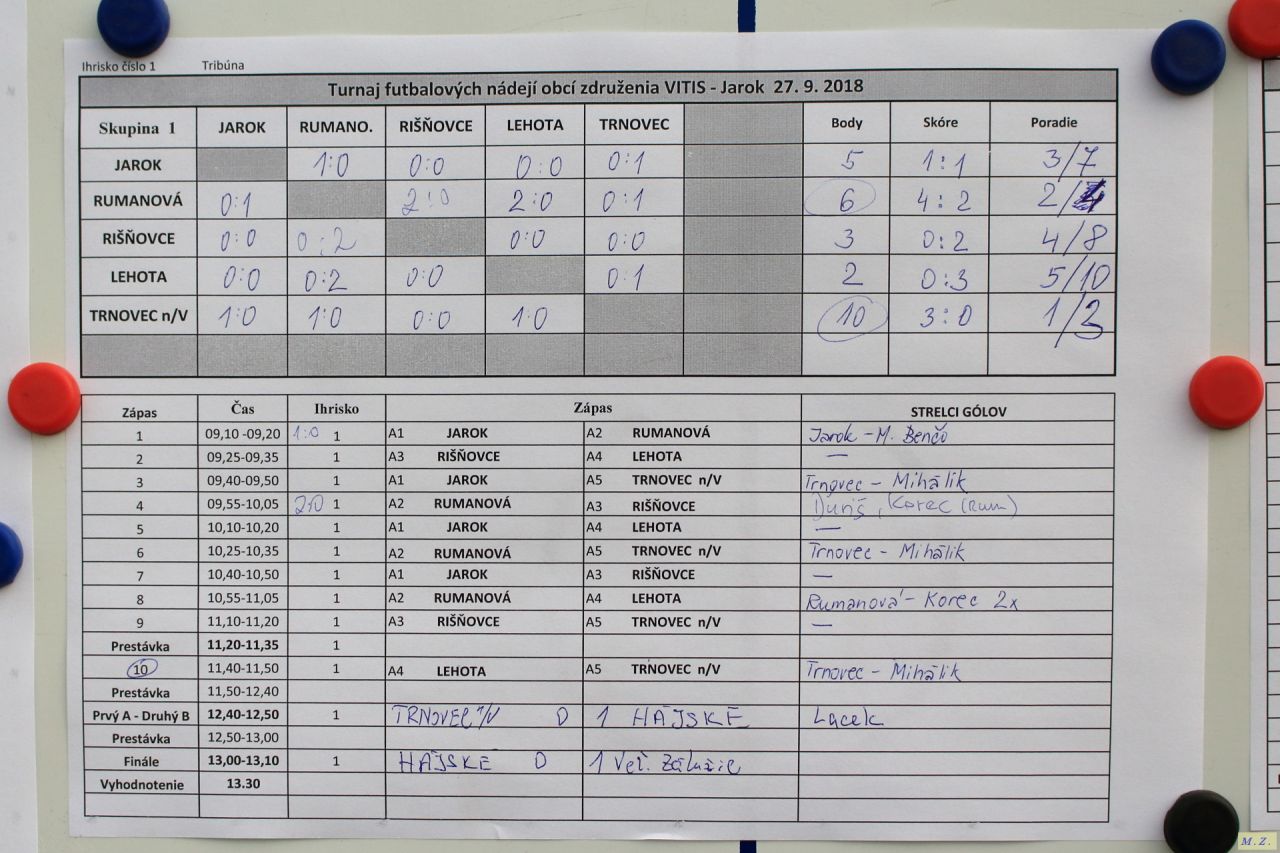 Ihrisko číslo 1 Tribúna
Turnaj futbalových nádejí obcí združenia VITIS - Jarok 27. 9. 2018
Skupina 1 JAROK RUMANO. RIŠŇOVCE LEHOTA TRNOVEC Body Skóre Poradie
JAROK 1:0 0:0 0:0 0:1 5 1:1 3/7
RUMANOVÁ 0:1 2:0 2:0 0:1 6 4:2 2/
RIŠŇOVCE 0:0 0:2 0:0 0:0 3 0:2 4/8
LEHOTA 0:0 0:2 0:0 0:1 2 0:3 5/10
TRNOVEC n/V 1:0 1:0 0:0 1:0 10 3:0 1/3
Zápas Čas Ihrisko Zápas STRELCI GÓLOV
1 09,10 -09,20 1:0 1 A1 JAROK A2 RUMANOVÁ Jarok - M. Benčo
2 09,25-09,35 1 A3 RIŠŇOVCE A4 LEHOTA —
3 09,40-09,50 1 A1 JAROK A5 TRNOVEC n/V Trnovec - Mihálik
4 09,55-10,05 2:0 1 A2 RUMANOVÁ A3 RIŠŇOVCE Ďuriš, Korec (Rum)
5 10,10-10,20 1 A1 JAROK A4 LEHOTA —
6 10,25-10,35 1 A2 RUMANOVÁ A5 TRNOVEC n/V Trnovec - Mihálik
7 10,40-10,50 1 A1 JAROK A3 RIŠŇOVCE —
8 10,55-11,05 1 A2 RUMANOVÁ A4 LEHOTA Rumanová - Korec 2x
9 11,10-11,20 1 A3 RIŠŇOVCE A5 TRNOVEC n/V —
Prestávka 11,20-11,35 1
10 11,40-11,50 1 A4 LEHOTA A5 TRNOVEC n/V Trnovec - Mihálik
Prestávka 11,50-12,40
Prvý A - Druhý B 12,40-12,50 1 TRNOVEC n/V 0 1 HÁJSKE Lacek
Prestávka 12,50-13,00
Finále 13,00-13,10 1 HÁJSKE 0 1 Veľ. Zálužie
Vyhodnotenie 13.30
M.Z.